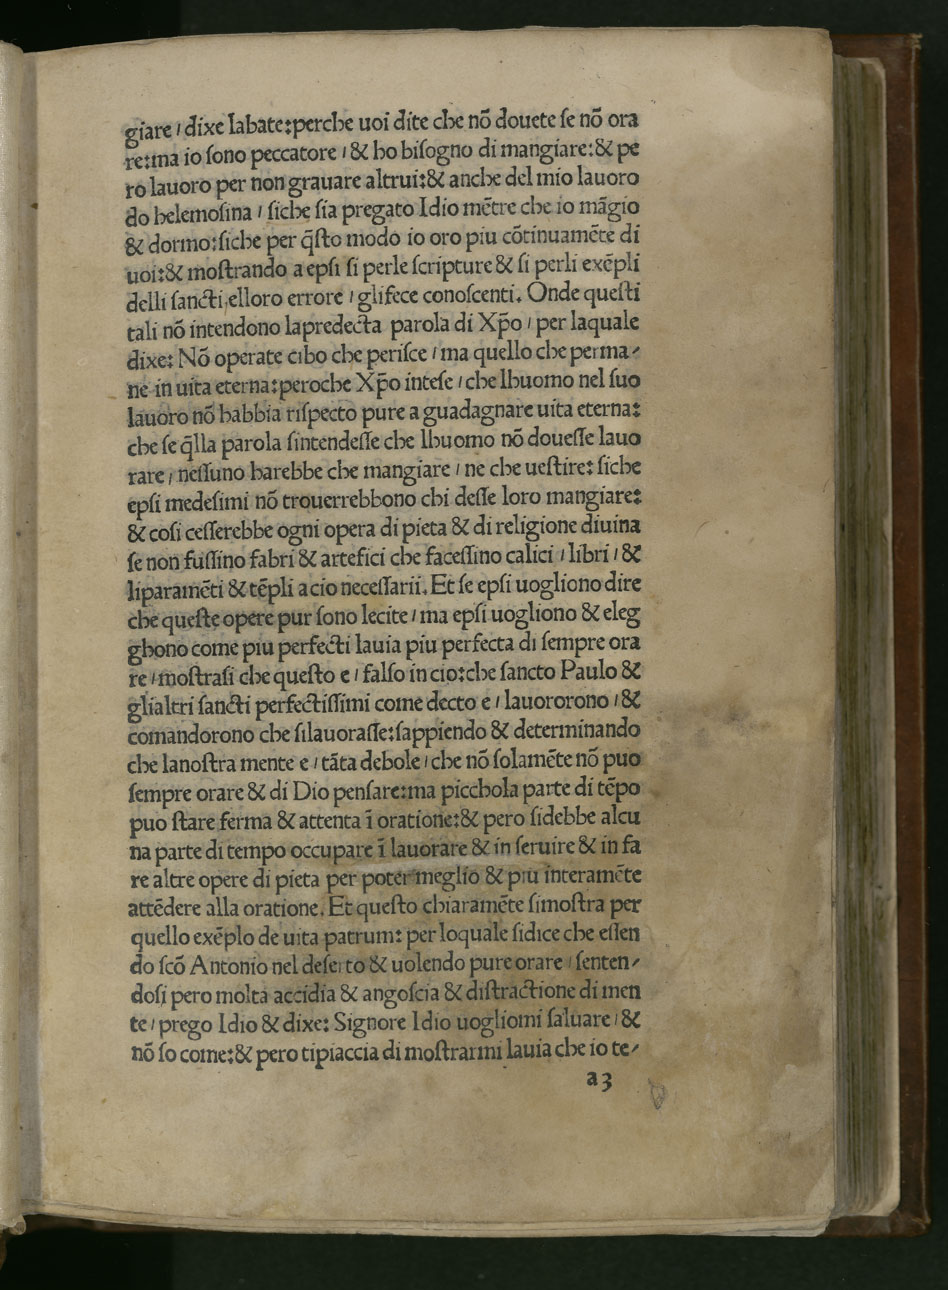 giare / dixe labate:perche uoi dite che nõ douete ſe nõ ora
re:ma io ſono peccatore / & ho biſogno di mangiare:& pe
ro lauoro per non grauare altrui:& anche del mio lauoro
do helemoſina / ſiche ſia pregato Idio mẽtre che io mãgio
& dormo:ſiche per q̃ſto modo io oro piu cõtinuamẽte di
uoi:& moſtrando a epſi ſi perle ſcripture & ſi perli exẽpli
delli ſancti elloro errore / gliſece conoſcenti. Onde queſti
tali nõ intendono lapredecta parola di Xp̃o / per laquale
dixe: Nõ operate cibo che periſce / ma quello che perma-
ne in uita eterna:peroche Xp̃o inteſe / che lhuomo nel ſuo
lauoro nõ habbia riſpecto pure a guadagnare uita eterna:
che ſe q̃lla parola ſintendeſſe che lhuomo nõ doueſſe lauo
rare / neſſuno harebbe che mangiare / ne che ueſtire: ſiche
epſi medeſimi nõ trouerrebbono chi deſſe loro mangiare:
& coſi ceſſerebbe ogni opera di pieta & di religione diuina
ſe non fuſſino fabri & artefici che faceſſino calici / libri / &
liparamẽti & tẽpli acio neceſſarii. Et ſe epſi uogliono dire
che queſte opere pur ſono lecite / ma epſi uogliono & eleg
ghono come piu perfecti lauia piu perfecta di ſempre ora
re / moſtraſi che queſto e / falſo in cio:che ſancto Paulo &
glialtri ſancti perfectiſſimi come decto e / lauororono / &
comandorono che ſilauoraſſe:ſappiendo & determinando
che lanoſtra mente e / tãta debole / che nõ ſolamẽte nõ puo
ſempre orare & di Dio penſare:ma picchola parte di tẽpo
puo ſtare ferma & attenta ĩ oratione:& pero ſidebbe alcu
na parte di tempo occupare ĩ lauorare & in ſeruire & in fa
re altre opere di pieta per poter meglio & piu interamẽte
attẽdere alla oratione. Et queſto chiaramẽte ſimoſtra per
quello exẽplo de uita patrum: per loquale ſidice che eſſen
do ſcõ Antonio nel deſerto & uolendo pure orare / ſenten-
doſi pero molta accidia & angoſcia & diſtractione di men
te / prego Idio & dixe: Signore Idio uogliomi ſaluare / &
nõ ſo come:& pero tipiaccia di moſtrarmi lauia che io te-
a3